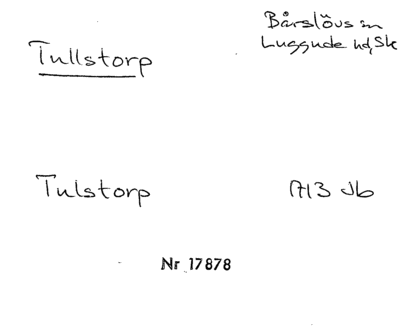 Tullstorp
Bårslövs sn
Luggude hd, Sk
Tulstorp
1713 Jb
Nr 17878